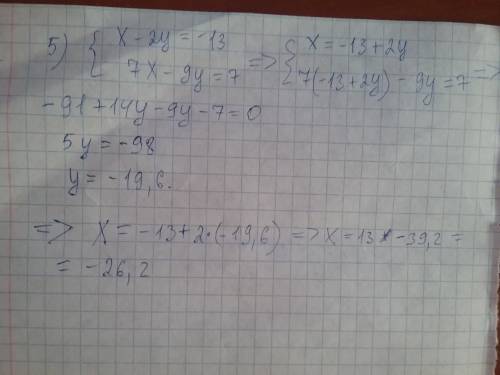 5) { x - 2y = -13 => { x = -13 + 2y
7x - 9y = 7 7(-13 + 2y) - 9y = 7 =>
-91 + 14y - 9y - 7 = 0
5y = -98
y = -19,6.
=> x = -13 + 2·(-19,6) => x = 13 - 39,2 =
= -26,2